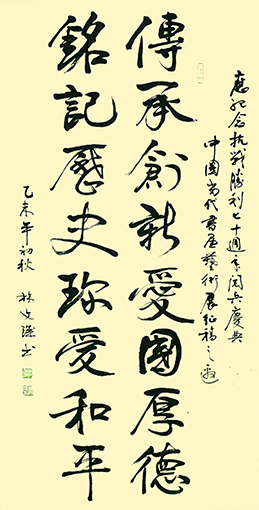 應紀念抗戰勝利七十週年閱兵慶典
中国當代書画藝術展征稿之邀
傳承創新愛國厚德
銘記歷史珍愛和平
乙未年初秋 林文謹书